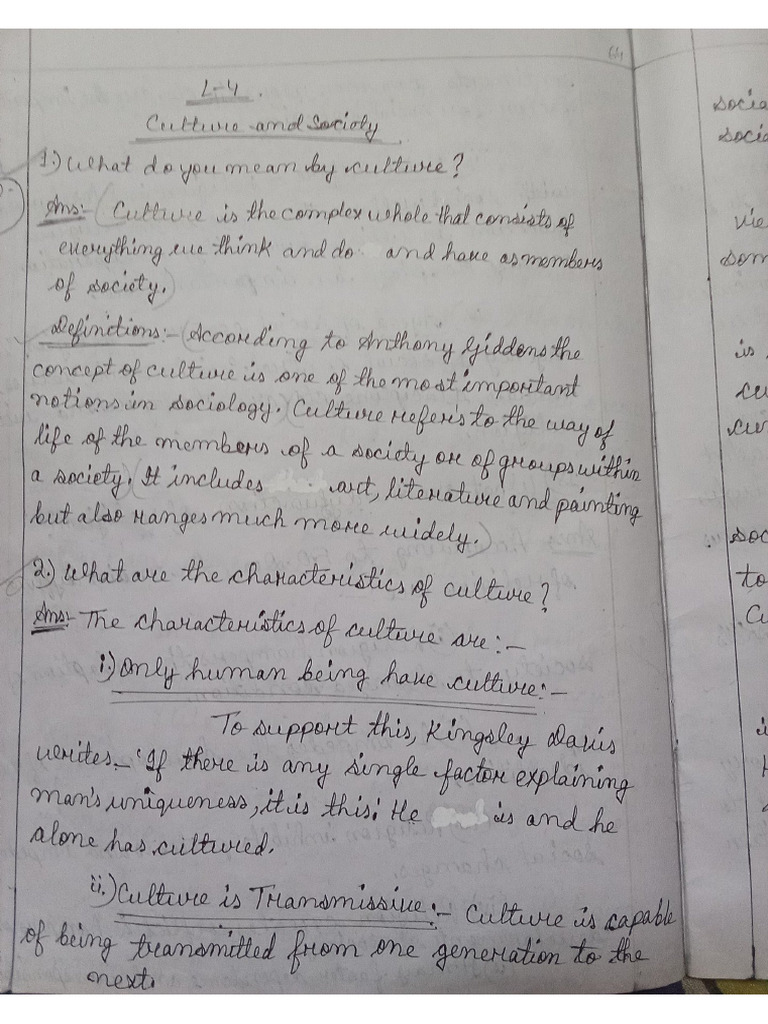 L-4.
Culture and Socioty
1.) What do you mean by culture?
Ans:- (Culture is the complex whole that consists of
everything we think and do and have as members
of society.)
Definitions:- (According to Anthony Giddens the
concept of culture is one of the most important
notions in sociology. (Culture refers to the way of
life of the members of a society or of groups within
a society. (It includes art, literature and painting
but also ranges much more widely.)
2.) What are the characteristics of culture?
Ans:- The characteristics of culture are:-
i.) Only human being have culture:-
To support this, Kingsley Davis
writes- 'If there is any single factor explaining
man's uniqueness, it is this: He is and he
alone has cultured.
ii.) Culture is Transmissive:- Culture is capable
of being transmitted from one generation to the
next.
socia
socia
vie
som
is
cu
cur
soc
to
Cu